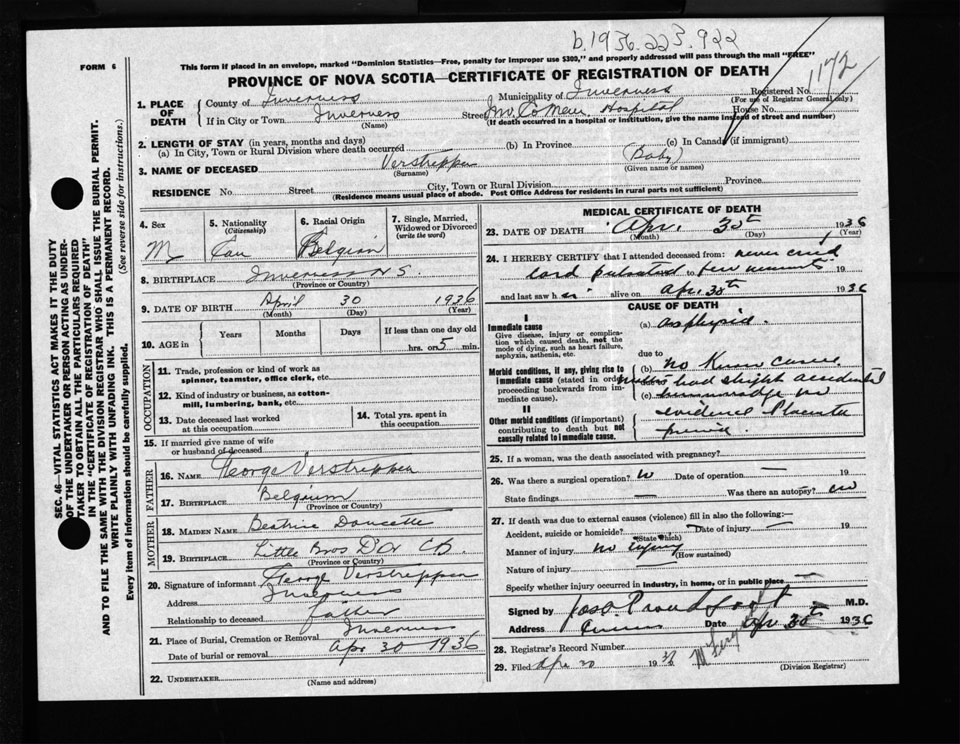 b.1936.223.922
FORM 6
This form if placed in an envelope, marked "Dominion Statistics—Free, penalty for improper use $300," and properly addressed will pass through the mail "FREE"
PROVINCE OF NOVA SCOTIA—CERTIFICATE OF REGISTRATION OF DEATH
1172
SEC. 46—VITAL STATISTICS ACT MAKES IT THE DUTY
OF THE UNDERTAKER OR PERSON ACTING AS UNDER-
TAKER TO OBTAIN ALL THE PARTICULARS REQUIRED
IN THE "CERTIFICATE OF REGISTRATION OF DEATH"
AND TO FILE THE SAME WITH THE DIVISION REGISTRAR WHO SHALL ISSUE THE BURIAL PERMIT.
WRITE PLAINLY WITH UNFADING INK. THIS IS A PERMANENT RECORD.
Every item of information should be carefully supplied. (See reverse side for instructions.)
1. PLACE OF DEATH
County of Inverness Municipality of Inverness Registered No.
(For use of Registrar General only)
If in City or Town Inverness Street Inv. Co Mem. Hospital House No.
(Name) (If death occurred in a hospital or institution, give the name instead of street and number)
2. LENGTH OF STAY (in years, months and days)
(a) In City, Town or Rural Division where death occurred (b) In Province (c) In Canada (if immigrant)
3. NAME OF DECEASED Verstreppen (Baby)
(Surname) (Given name or names)
RESIDENCE No. Street City, Town or Rural Division Province
(Residence means usual place of abode. Post Office Address for residents in rural parts not sufficient)
4. Sex M
5. Nationality (Citizenship) Can
6. Racial Origin Belgian
7. Single, Married, Widowed or Divorced (write the word)
8. BIRTHPLACE Inverness N S.
(Province or Country)
9. DATE OF BIRTH April 30 1936
(Month) (Day) (Year)
10. AGE in Years Months Days If less than one day old
hrs. or 5 min.
OCCUPATION
11. Trade, profession or kind of work as spinner, teamster, office clerk, etc.
12. Kind of industry or business, as cotton-mill, lumbering, bank, etc.
13. Date deceased last worked at this occupation
14. Total yrs. spent in this occupation
15. If married give name of wife or husband of deceased
FATHER
16. NAME George Verstreppen
17. BIRTHPLACE Belgium
(Province or Country)
MOTHER
18. MAIDEN NAME Beatrice Doucette
19. BIRTHPLACE Little Bras D'Or CB.
(Province or Country)
20. Signature of informant George Verstreppen
Address Inverness
Relationship to deceased father
21. Place of Burial, Cremation or Removal Inverness
Date of burial or removal Apr 30 1936
22. UNDERTAKER
(Name and address)
MEDICAL CERTIFICATE OF DEATH
23. DATE OF DEATH Apr. 30th 1936
(Month) (Day) (Year)
24. I HEREBY CERTIFY that I attended deceased from: never cried
cord pulsated to few minutes 19
and last saw h im alive on Apr. 30th 1936
CAUSE OF DEATH
I
Immediate cause
Give disease, injury or complication which caused death, not the mode of dying, such as heart failure, asphyxia, asthenia, etc.
(a) asphyxia.
due to
Morbid conditions, if any, giving rise to immediate cause (stated in order proceeding backwards from immediate cause).
(b) no known cause
mother had slight accidental
(c) hemorrhage no
II
Other morbid conditions (if important) contributing to death but not causally related to immediate cause.
evidence Placenta
previa.
25. If a woman, was the death associated with pregnancy?
26. Was there a surgical operation? no Date of operation — 19
State findings — Was there an autopsy? no
27. If death was due to external causes (violence) fill in also the following:—
Accident, suicide or homicide? Date of injury — 19
(State which)
Manner of injury no injury
(How sustained)
Nature of injury
Specify whether injury occurred in industry, in home, or in public place —
Signed by Jas. Proudfoot M.D.
Address Date Apr 30th 1936
28. Registrar's Record Number
29. Filed Apr 30 19
(Division Registrar)